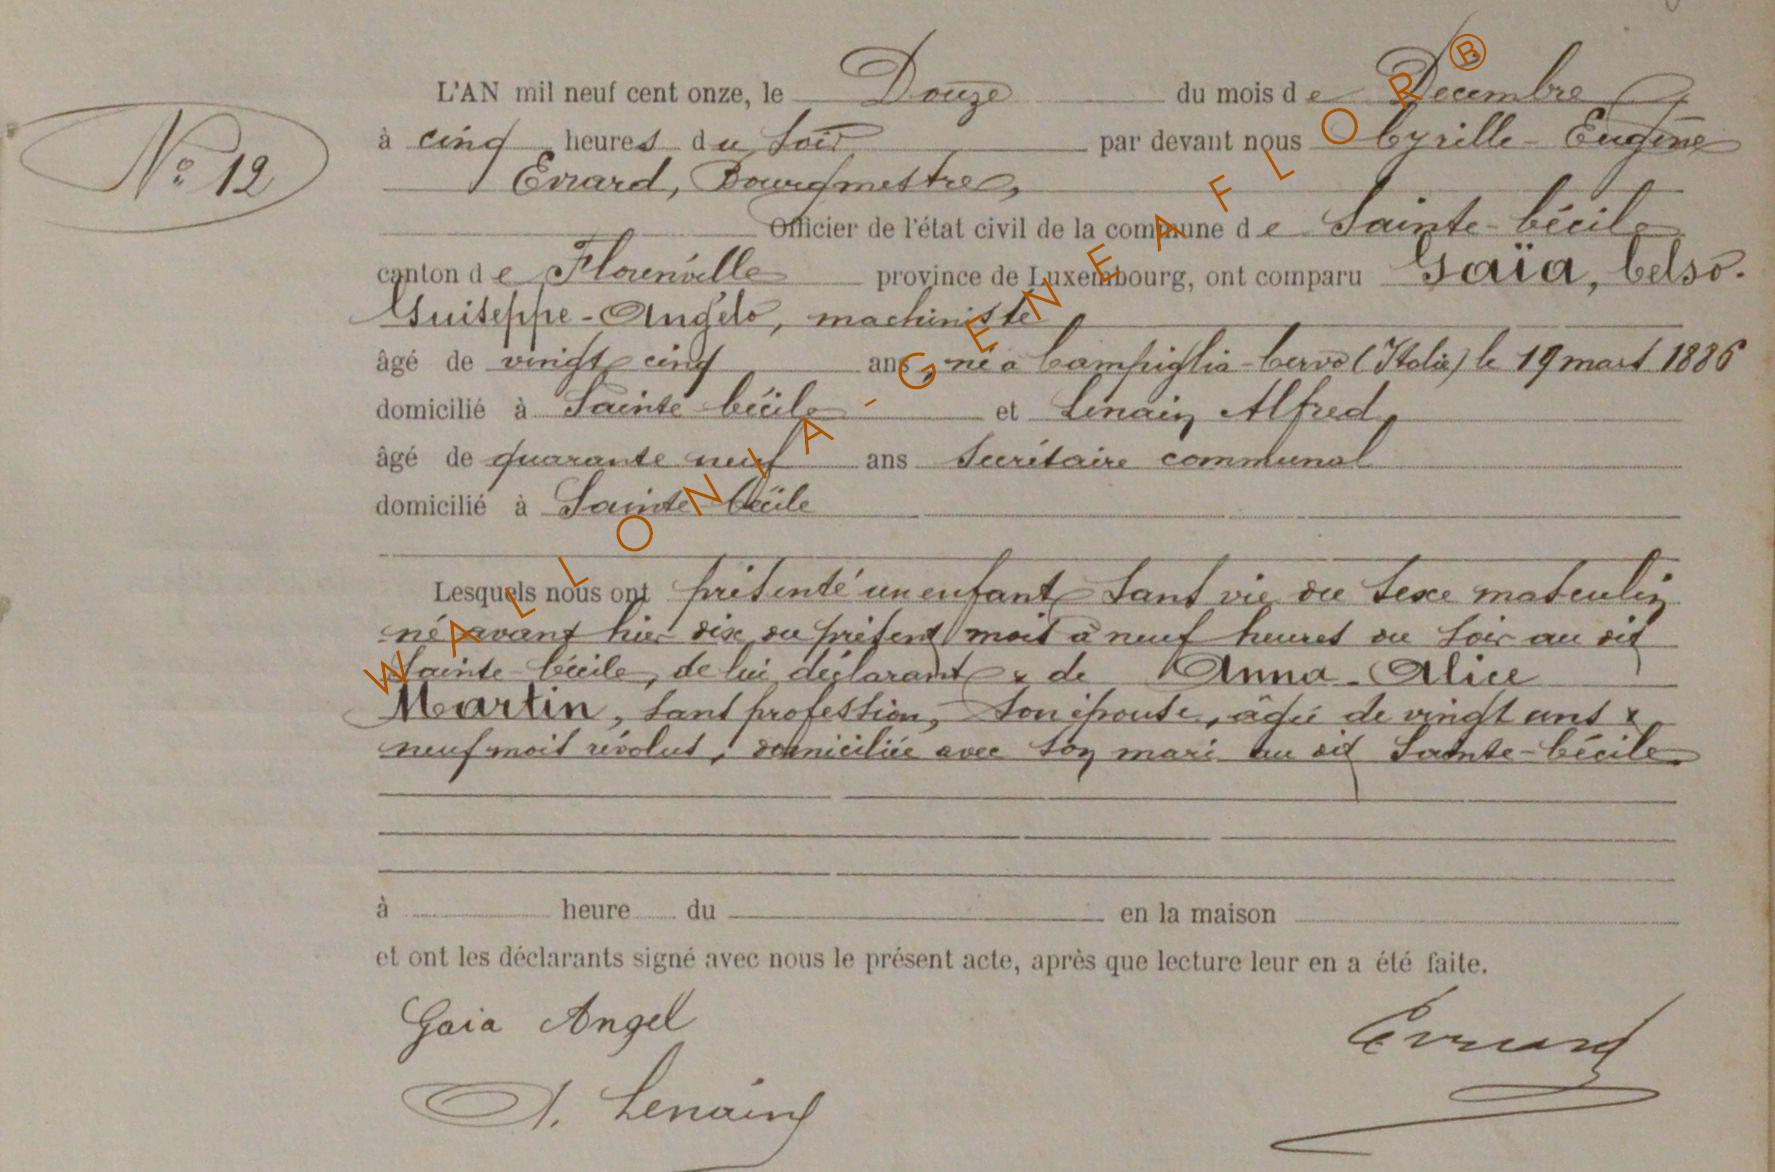 L'AN mil neuf cent onze, le Douze du mois de Décembre
N° 12
à cinq heures du soir par devant nous Cyrille-Eugène
Evrard, Bourgmestre,
Officier de l'état civil de la commune de Sainte-Cécile
canton de Florenville province de Luxembourg, ont comparu Gaïa, Celso-
Guiseppe-Angelo, machiniste
âgé de vingt cinq ans, né à Campiglia-Cervo (Italie) le 19 mars 1886
domicilié à Sainte Cécile et Lenain Alfred,
âgé de quarante neuf ans Secrétaire communal
domicilié à Sainte-Cécile
Lesquels nous ont présenté un enfant sans vie du sexe masculin
né avant hier dix du présent mois à neuf heures du soir au dit
Sainte-Cécile, de lui déclarant & de Anna-Alice
Martin, sans profession, son épouse, âgée de vingt ans &
neuf mois révolus, domiciliée avec son mari au dit Sainte-Cécile
à heure du en la maison
et ont les déclarants signé avec nous le présent acte, après que lecture leur en a été faite.
Gaia Angel
Evrard
A. Lenain
WALLONIA-GENEAFLOR®